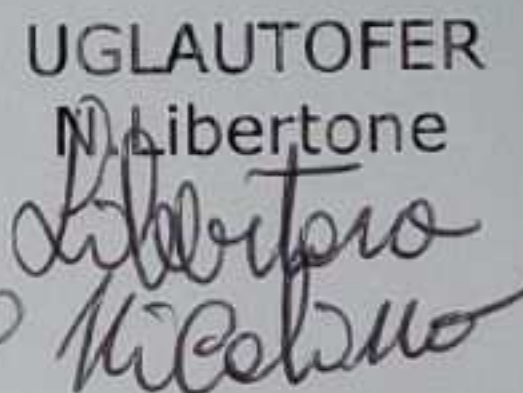 UGLAUTOFER
N. Libertone
Libertone
Nicolino